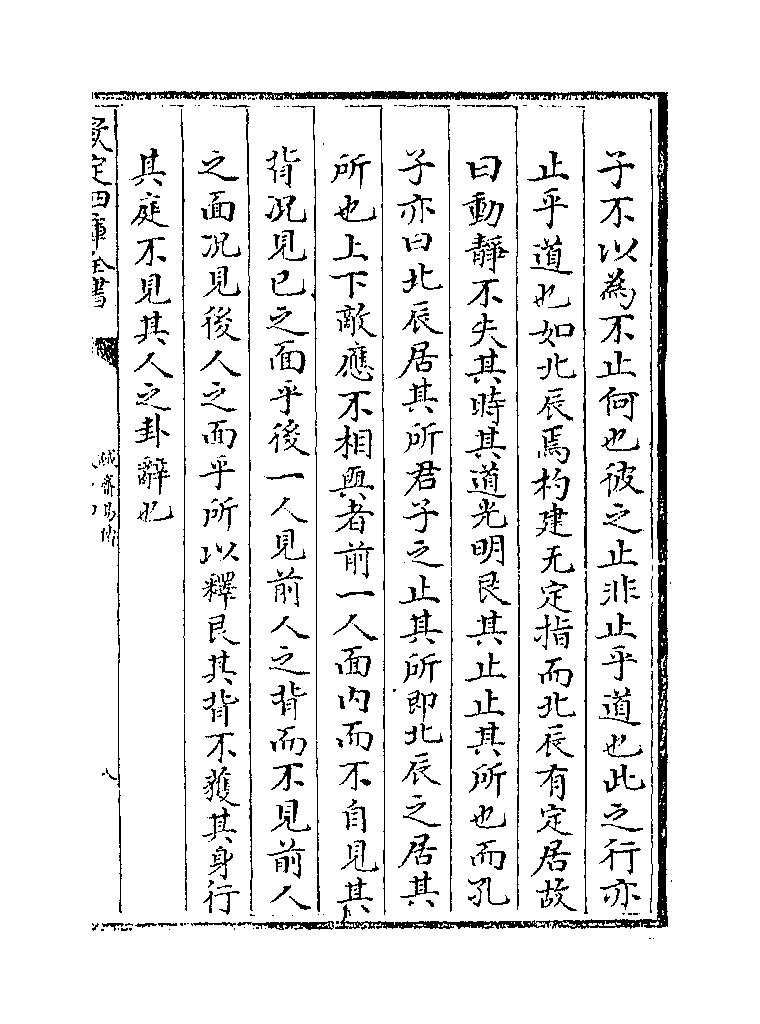 子不以為不止何也彼之止非止乎道也此之行亦
止乎道也如北辰焉杓建无定指而北辰有定居故
曰動静不失其時其道光明艮其止止其所也而孔
子亦曰北辰居其所君子之止其所即北辰之居其
所也上下敵應不相與者前一人面内而不自見其
背况見已之面乎後一人見前人之背而不見前人
之面况見後人之面乎所以釋艮其背不獲其身行
其庭不見其人之卦辭也
欽定四庫全書
誠齋易傳
八